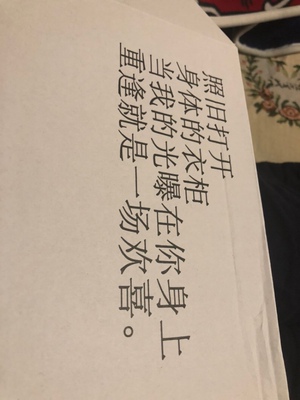 照旧打开
身体的衣柜
当我的光曝在你身上
重逢就是一场欢喜。